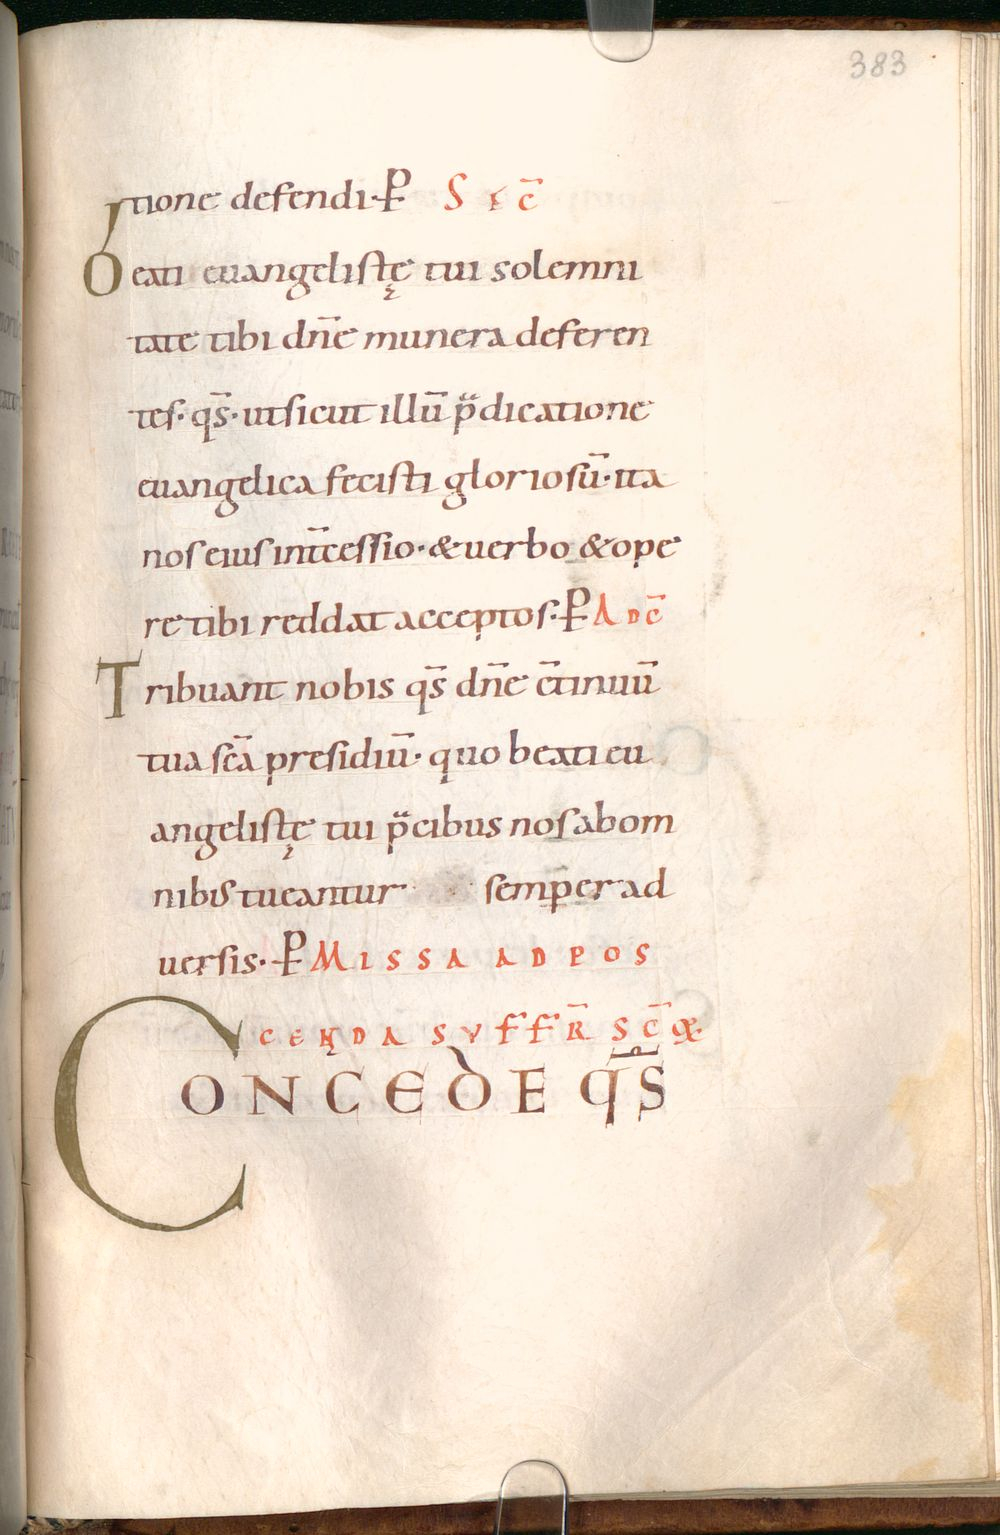 383
tione defendi·P̄ S Ec̄
beati euangelistę tui solemni
tate tibi dn̄e munera deferen
tes· qs̄· ut sicut illū p̈dicatione
euangelica fecisti gloriosū· ita
nos eius int̄cessio· & uerbo & ope
re tibi reddat acceptos· P̄ AD C̄
Tribuant nobis qs̄ dn̄e c̄tinuū
tua sc̄a presidiū· quo beati eu
angelistę tui p̈cibus nos ab om
nibus tueantur semper ad
uersis· P̄ MISSA AD POS
CENDA SUFFR̄ SC̄Oꝝ
CONCEDE QS̄